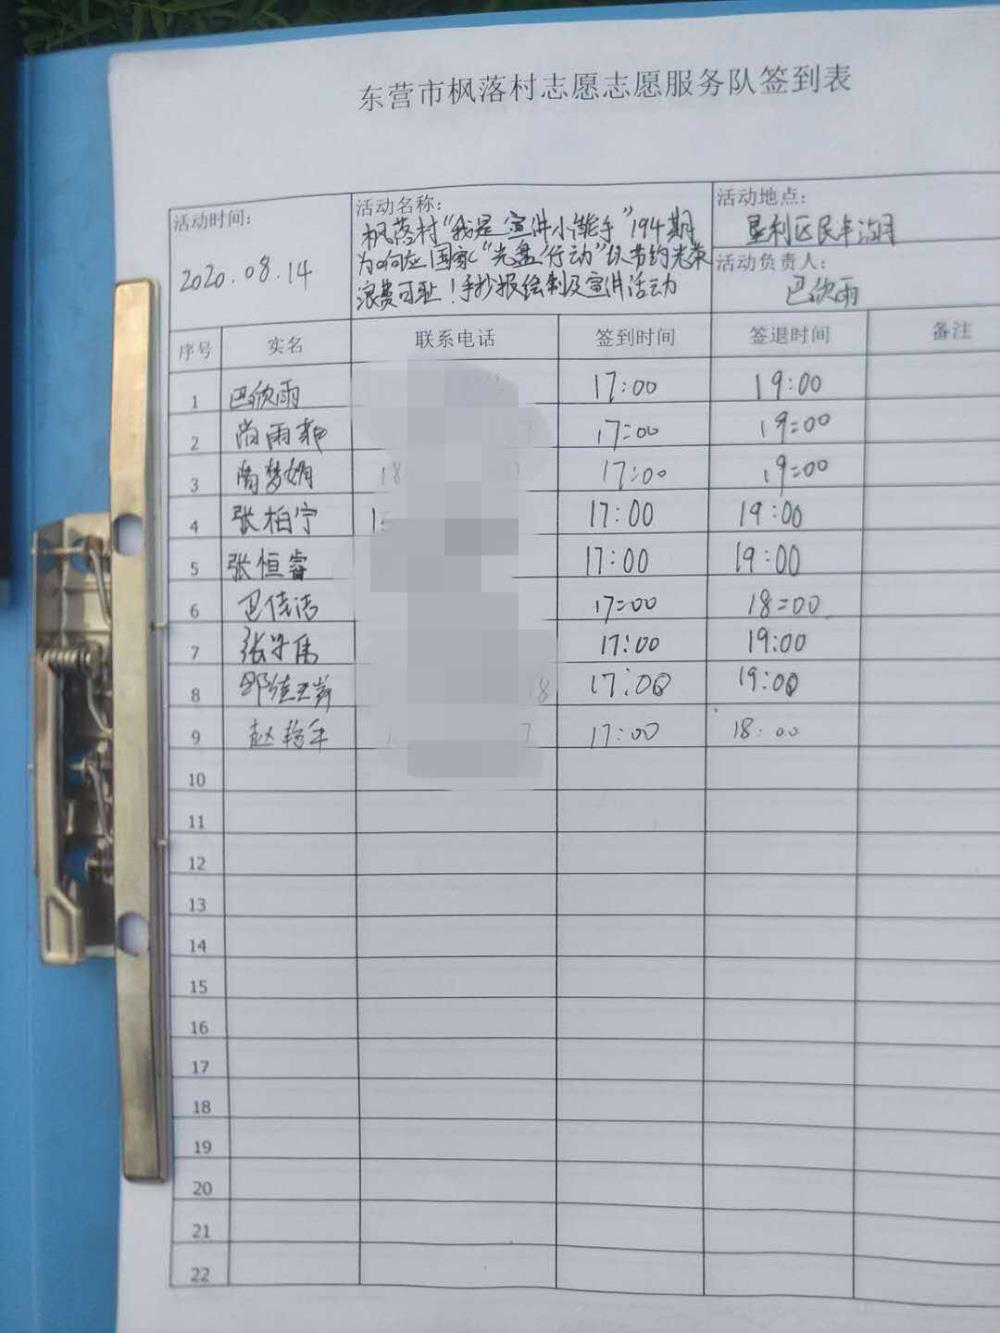 东营市枫落村志愿志愿服务队签到表
活动时间:
2020.08.14
活动名称:
枫落村“我是宣传小能手”194期
为响应国家“光盘行动”以节约光荣
浪费可耻！手抄报绘制及宣传活动
活动地点:
垦利区民丰湖
活动负责人:
巴欣雨
序号 实名 联系电话 签到时间 签退时间 备注
1 巴欣雨 17:00 19:00
2 尚雨 17:00 19:00
3 梦娟 18 17:00 19:00
4 张柏宁 15 17:00 19:00
5 张恒睿 17:00 19:00
6 巴佳洁 17:00 18:00
7 张 伟 17:00 19:00
8 8 17:00 19:00
9 赵 7 17:00 18:00
10
11
12
13
14
15
16
17
18
19
20
21
22